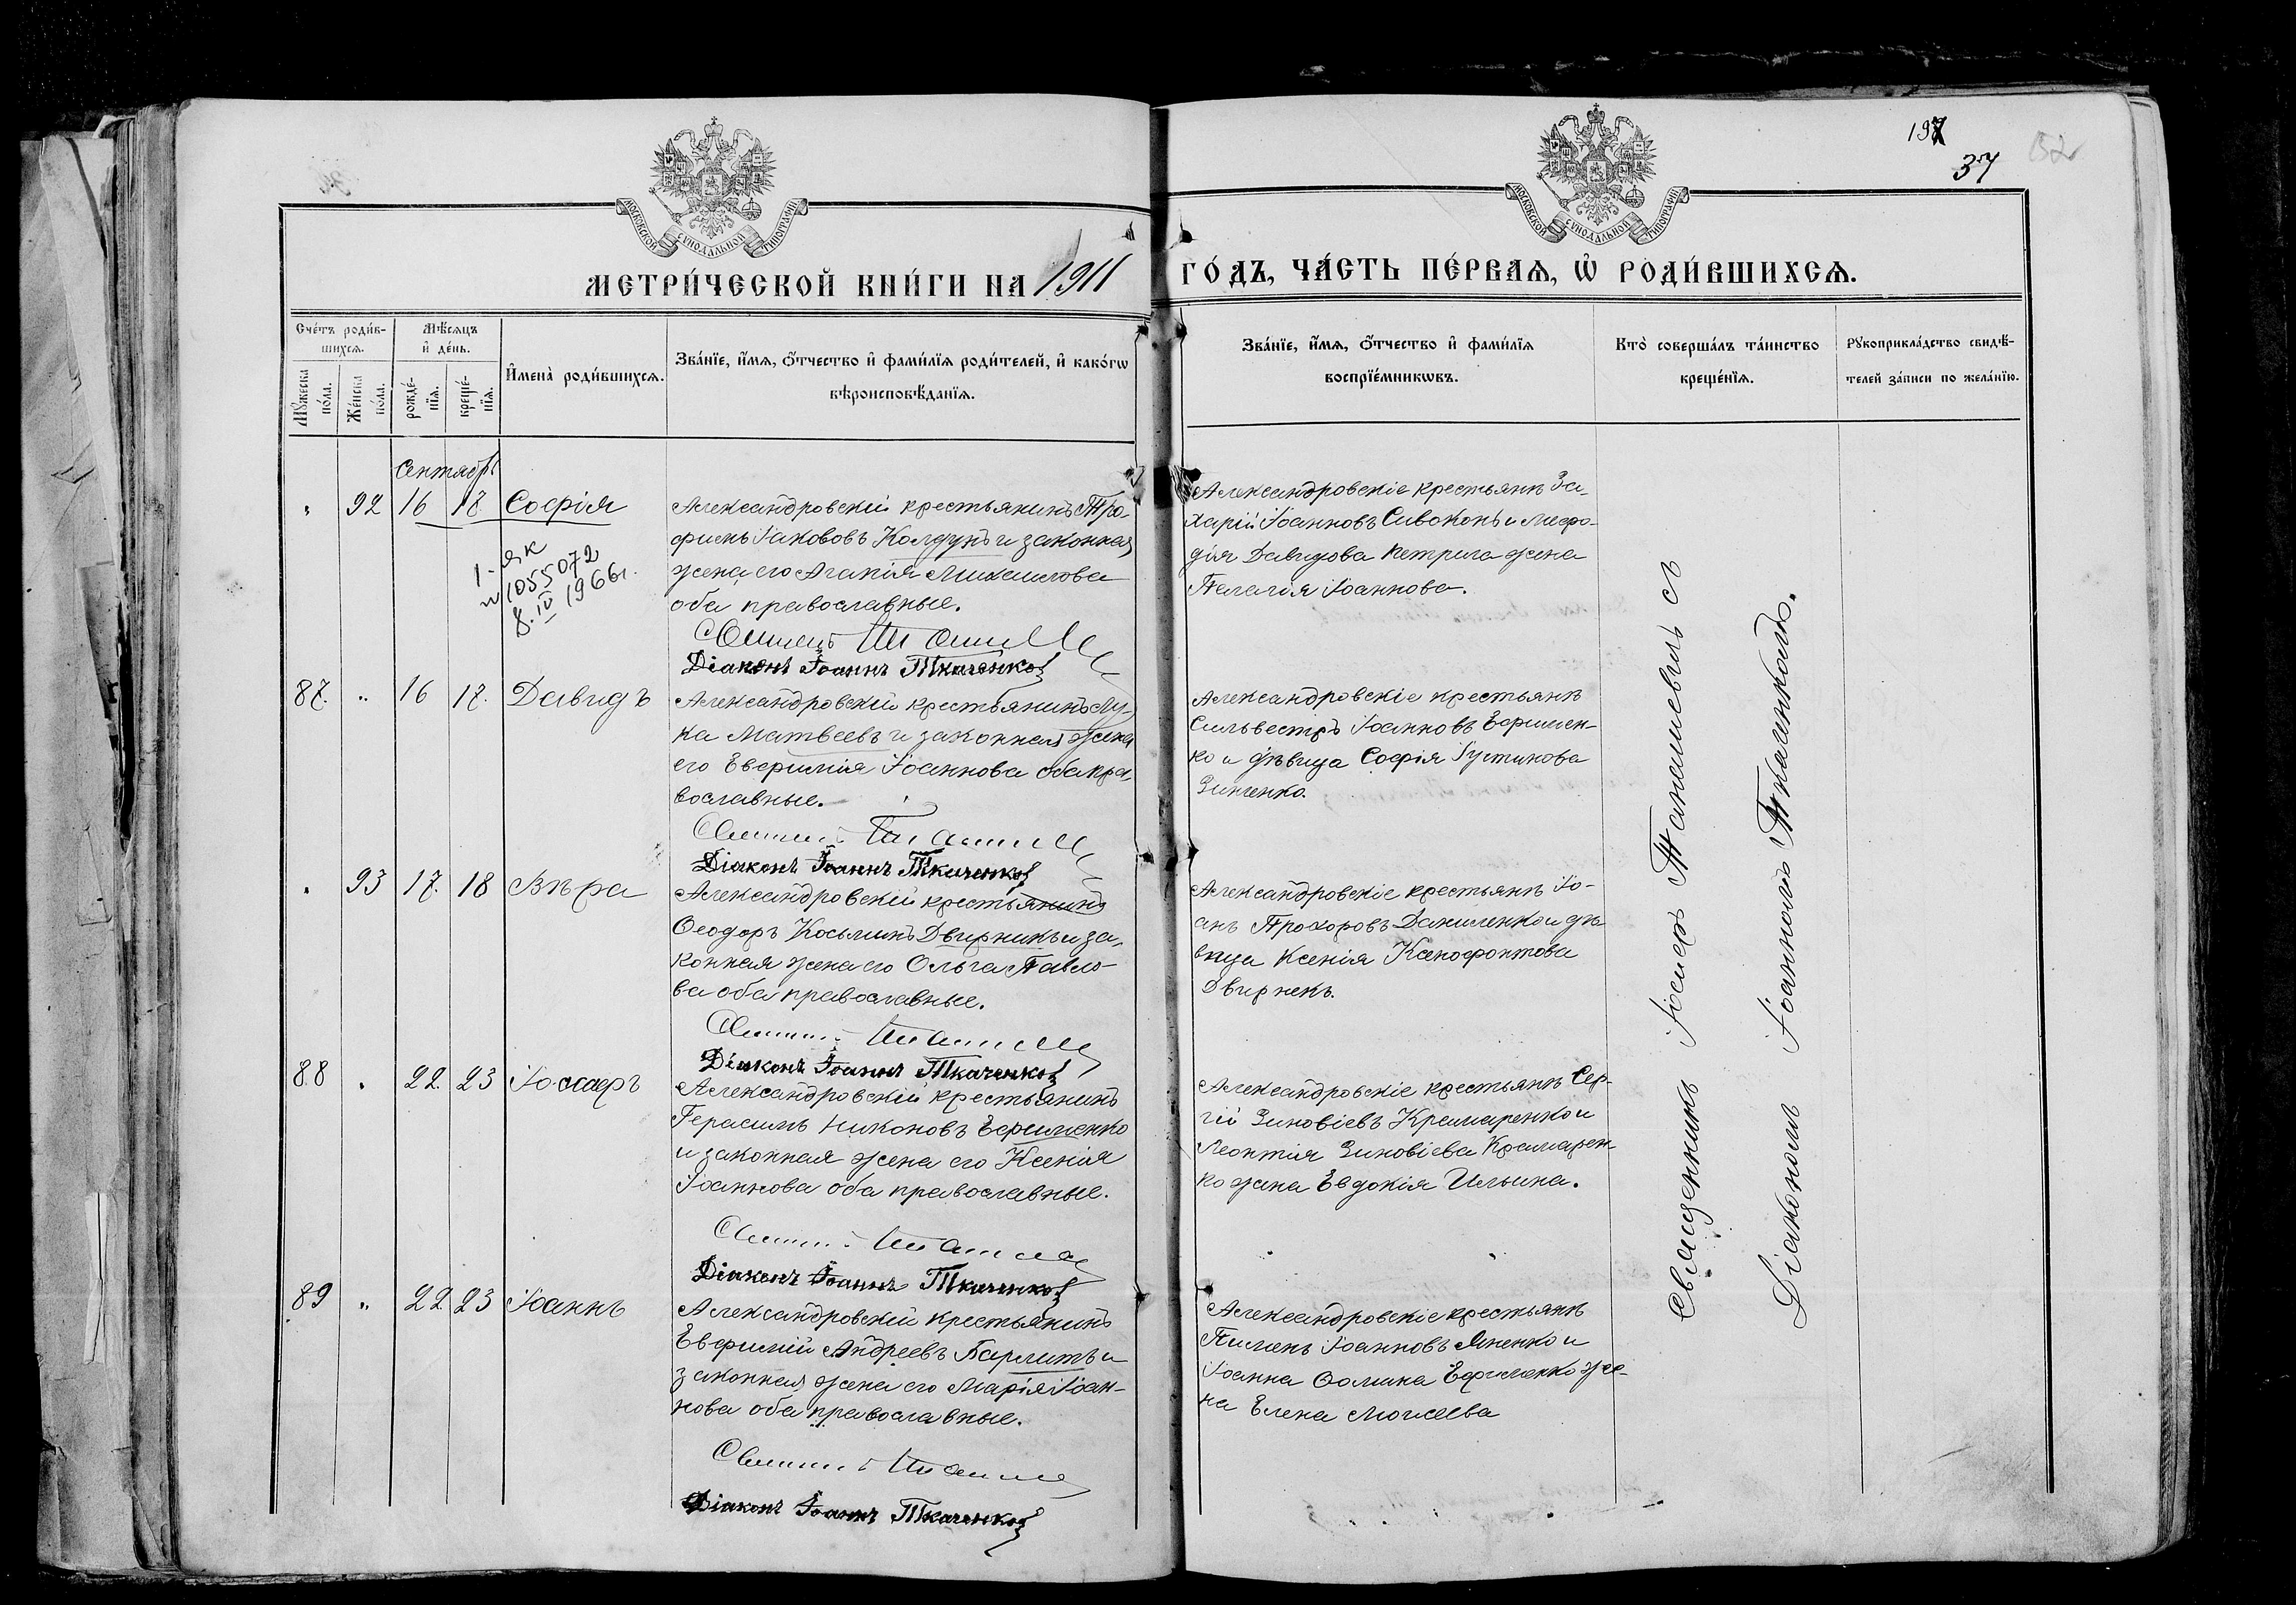 197
37
152
МОСКОВСКОЙ СѴНОДАЛЬНОЙ ТИПОГРАФІИ
МОСКОВСКОЙ СѴНОДАЛЬНОЙ ТИПОГРАФІИ
МЕТРИ́ЧЕСКОЙ КНИ́ГИ НА 1911 ГО́ДЪ, ЧА́СТЬ ПЕ́РВАѦ, Ѡ РОДИ́ВШИХСѦ.
Сче́тъ роди́в-
шихсѧ.
Мꙋжеска по́ла.
Же́нска по́ла.
Мѣ́сѧцъ и де́нь.
рожде́-
нїѧ.
креще́-
нїѧ.
И́мена роди́вшихсѧ.
Зва́нїе, и́мѧ, ѻ́тчество и фами́лїѧ роди́телей, и како́гѡ
вѣроисповѣ́данїѧ.
Зва́нїе, и́мѧ, ѻ́тчество и фами́лїѧ
воспрїе́мникѡвъ.
Кто̀ соверша́лъ та́инство
креще́нїѧ.
Рꙋкоприкла́дство свидѣ́-
телей за́писи по жела́нїю.
Сентябрь
" 92 16 18 Софія
1-ЯК
№ 1055072
8.IV 1966г.
Александровскій крестьянинъ Тро-
фимъ Іаковъ Колдунъ и законная
жена его Агапія Михаилова
оба православные.
Діаконъ Іоаннъ Ткаченко
Александровскіе крестьяне За-
харій Іоанновъ Сивоконь и Мефо-
дія Давидова Петрига жена
Пелагія Іоаннова.
87. " 16 17. Давидъ
Александровскій крестьянинъ Лу-
ка Матвеевъ и законная жена
его Евфимія Іоаннова оба пра-
вославные.
Діаконъ Іоаннъ Ткаченко
Александровскіе крестьяне
Сильвестръ Іоанновъ Ефимен-
ко и дѣвица Софія Іустинова
Зинченко.
" 93 17. 18 Вѣра
Александровскій крестьянинъ
Ѳеодоръ Косьминъ Двирникъ и за-
конная жена его Ольга Павло-
ва оба православные.
Діаконъ Іоаннъ Ткаченко
Александровскіе крестьяне Іо-
анъ Прохоровъ Даниленко и дѣ
вица Ксенія Ксенофонтова
Двирнекъ.
88 " 22. 23 Іосифъ
Александровскій крестьянинъ
Герасимъ Никоновъ Ефименко
и законная жена его Ксенія
Іоаннова оба православные.
Діаконъ Іоаннъ Ткаченко
Александровскіе крестьяне Сер-
гій Зиновіевъ Крамаренко и
Леонтія Зиновіева Крамарен-
ко жена Евдокія Ильина.
89 " 22. 23 Іоаннъ
Александровскій крестьянинъ
Евфимій Андреевъ Барлитъ и
законная жена его Марія Іоан-
нова оба православные.
Діаконъ Іоаннъ Ткаченко
Александровскіе крестьяне
Пименъ Іоанновъ Яненко и
Іоанна Ѳомина Ефименко же-
на Елена Моисеева
Священникъ Іосифъ с
Діакономъ Іоанномъ Ткаченкомъ.